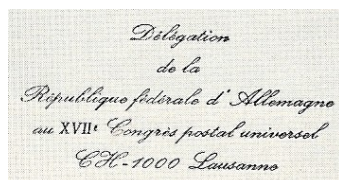 Délégation
de la
République fédérale d'Allemagne
au XVIIᵉ Congrès postal universel
CH-1000 Lausanne